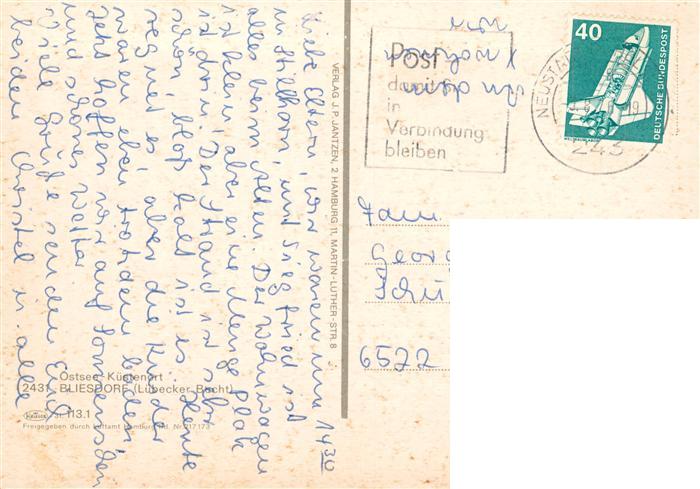 Liebe Eltern, wir waren um 14³⁰
in Stillhorn, mit Siegfried ist
alles beim Alten. Der Wohnwagen
ist klein, aber eine Menge Platz
ist drin. Der Strand ist sehr
schön bloß kalt ist es. Heute
regnet es, aber die Kinder
waren eben trotzdem baden.
Jetzt hoffen wir auf Sonnenschein
und schönes Wetter.
Viele Grüße senden Euch
beiden Christel u. alle
VERLAG J. P. JANTZEN, 2 HAMBURG 11, MARTIN-LUTHER-STR. 8
Ostsee-Küstenort
2431 BLIESDORF (Lübecker Bucht)
113.1
Freigegeben durch Luftamt Hamburg Nr. 217173
Post
damit
in
Verbindung
bleiben
NEUSTA
243
40
DEUTSCHE BUNDESPOST
Fam.
Georg
Schu
6522